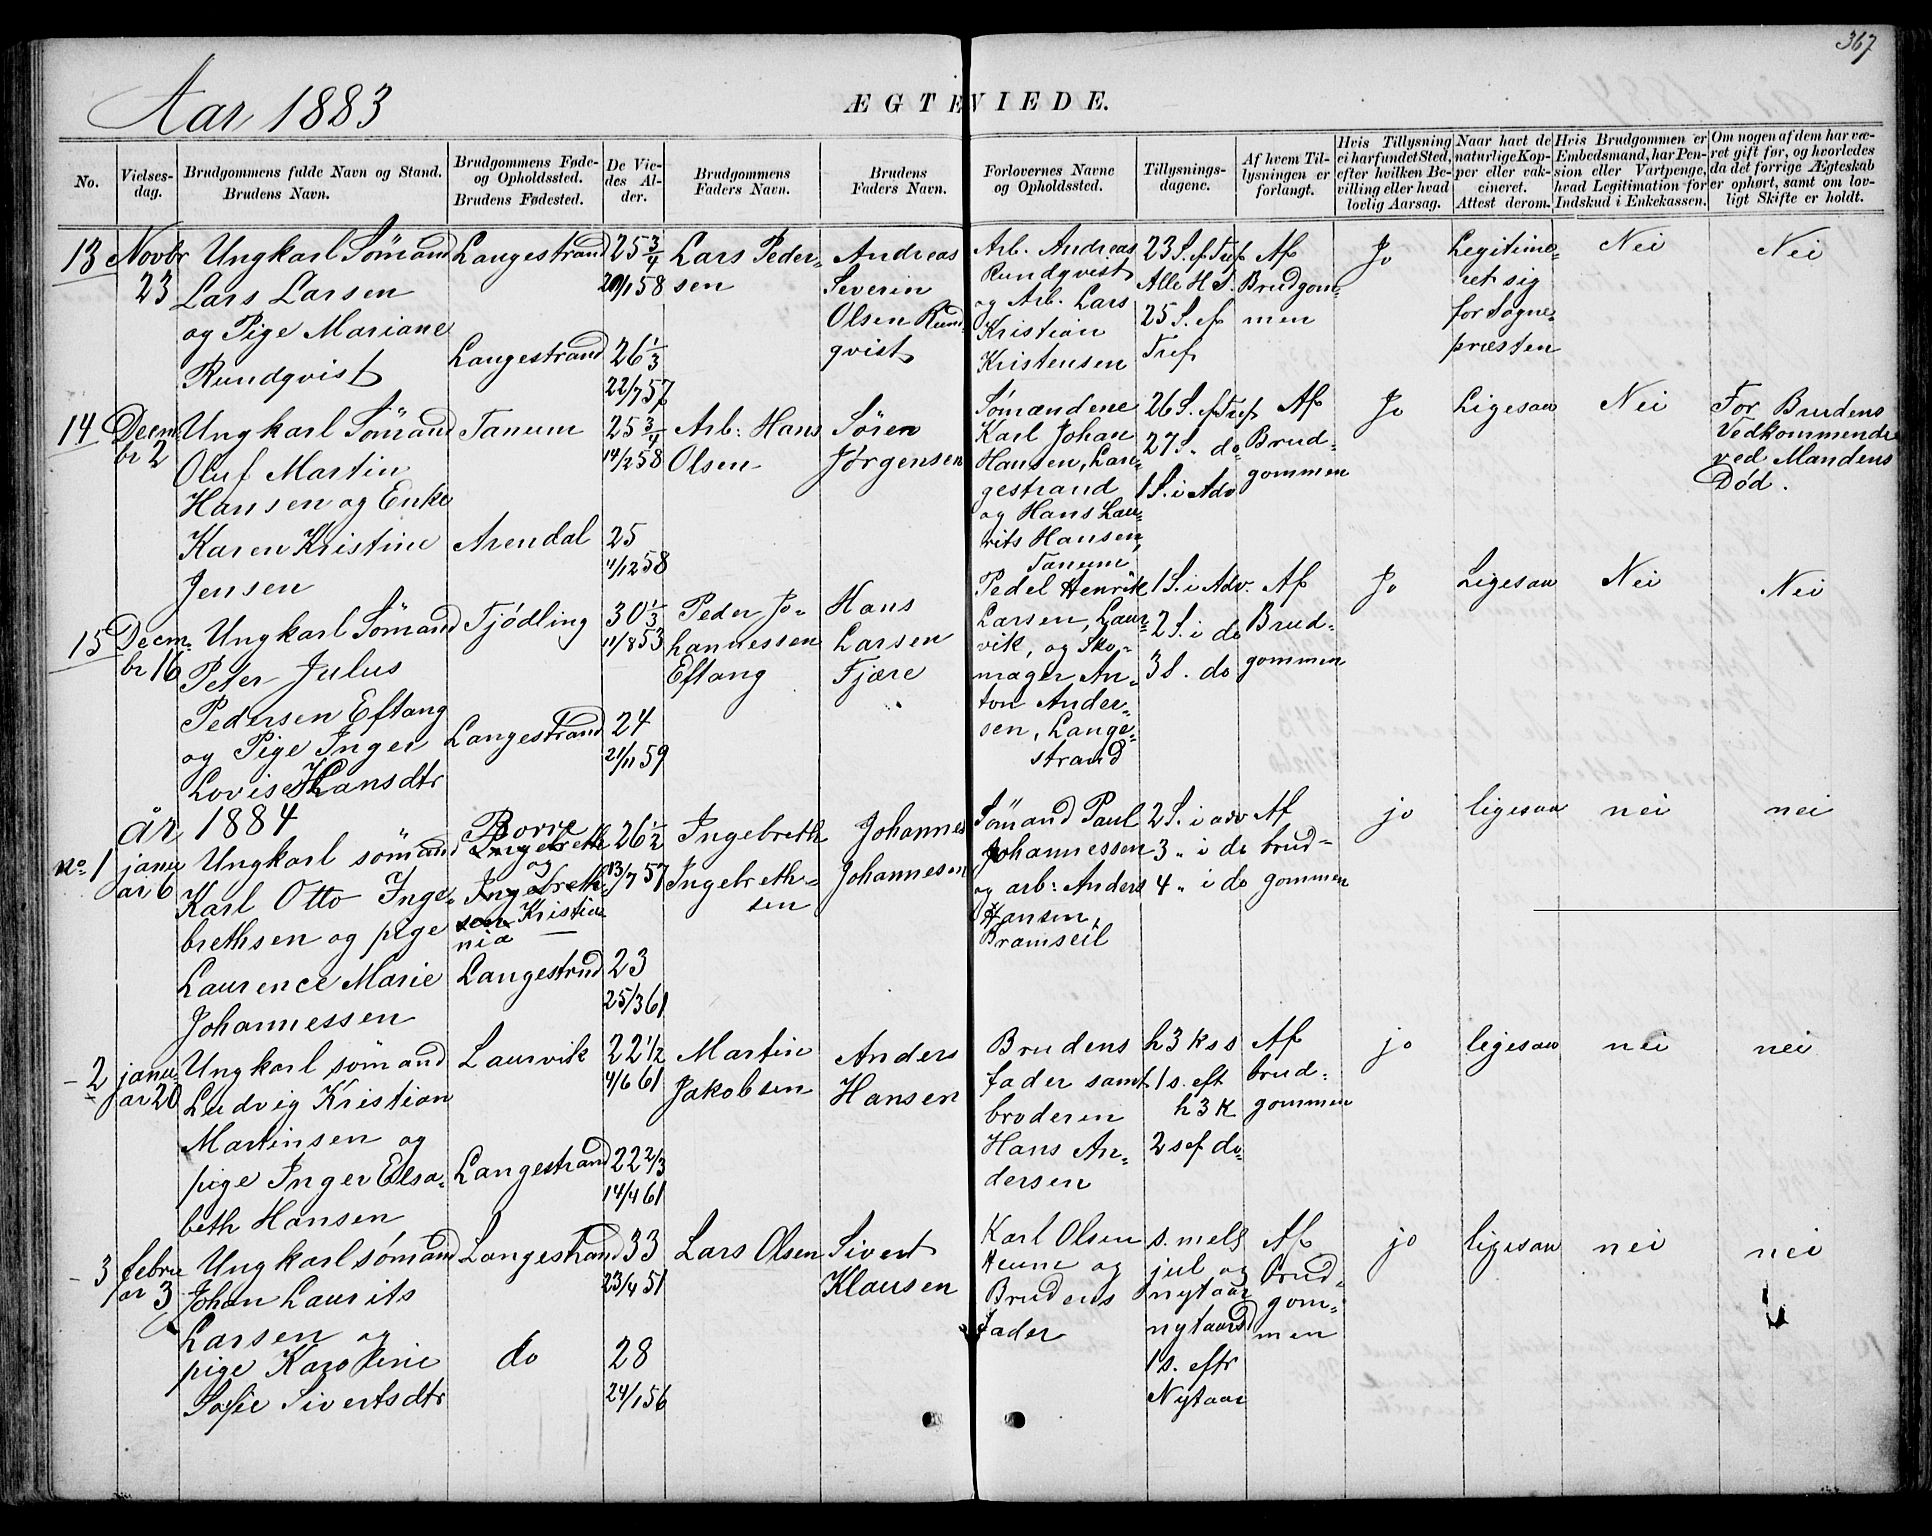 367
Aar 1883
ÆGTEVIEDE.
No.
Vielses-
dag.
Brudgommens fulde Navn og Stand.
Brudens Navn.
Brudgommens Føde-
og Opholdssted.
Brudens Fødested.
De Vie-
des Al-
der.
Brudgommens
Faders Navn.
Brudens
Faders Navn.
Forlovernes Navne
og Opholdssted.
Tillysnings-
dagene.
Af hvem Til-
lysningen er
forlangt.
Hvis Tillysning
ei har fundet Sted,
efter hvilken Be-
villing eller hvad
lovlig Aarsag.
Naar havt de
naturlige Kop-
per eller vak-
cineret.
Attest derom.
Hvis Brudgommen er
Embedsmand, har Pen-
sion eller Vartpenge,
hvad Legitimation for
Indskud i Enkekassen.
Om nogen af dem har væ-
ret gift før, og hvorledes
da det forrige Ægteskab
er ophørt, samt om lov-
ligt Skifte er holdt.
13
Novbr
23
Ungkarl Sømand
Lars Larsen
og Pige Mariane
Rundqvist
Langestrand
Langestrand
25 3/4
20/1 58
26 1/3
22/7 57
Lars Peder-
sen
Andreas
Severin
Olsen Rund-
qvist
Arb. Andreas
Rundqvist
og Arb. Lars
Kristian
Kristensen
23 S. ef Tref
Alle H S.
25 S. ef
Tref
Af
Brudgom-
men
Jo
Legitime-
ret sig
for Sogne-
præsten
Nei
Nei
14
Decm-
br 2
Ungkarl Sømand
Oluf Martin
Hansen og Enke
Karen Kristine
Jensen
Tanum
Arendal
25 3/4
14/2 58
25
4/12 58
Arb: Hans
Olsen
Søren
Jørgensen
Sømændene
Karl Johan
Hansen, Lan-
gestrand
og Hans Lau-
rits Hansen,
Tanum
26 S. ef Tref
27 S. do
1 S. i Adv
Af
Brud-
gommen
Jo
Ligesaa
Nei
For Brudens
Vedkommende
ved Mandens
Død.
15
Decm-
br 16
Ungkarl Sømand
Peter Julus
Pedersen Eftang
og Pige Inger
Lovise Hansdtr
Tjødling
Langestrand
30 1/3
11/8 53
24
21/11 59
Peder Jo-
hannessen
Eftang
Hans
Larsen
Fjære
Pedel Henrik
Larsen, Laur-
vik, og Sko-
mager An-
ton Ander-
sen, Lange-
strand
1 S. i Adv.
2 S. i do
3 S. do
Af
Brud-
gommen
Jo
Ligesaa
Nei
Nei
år 1884
no. 1
janu
ar 6
Ungkarl sømand
Karl Otto Inge-
brethsen og pige
Laurence Marie
Johannessen
Borre
og
Kristia
nia
Langestrnd
26 1/2
13/7 57
23
25/3 61
Ingebreth
Ingebreth-
sen
Johannes
Johannesen
Sømand Paul
Johannessen
og arb: Anders
Hansen,
Bramseil
2 S. i adv
3 " i do
4 " i do
Af
brud-
gommen
jo
ligesaa
nei
nei
- 2
janu
ar 20
Ungkarl sømand
Ludvig Kristian
Martinsen og
pige Inger Elsa-
beth Hansen
Laurvik
Langestrand
22 1/2
4/6 61
22 2/3
14/4 61
Martin
Jakobsen
Anders
Hansen
Brudens
fader samt
broderen
Hans An-
dersen
h 3 k s s
1 s. eft
h 3 K
2 s ef do
Af
brud-
gommen
jo
ligesaa
nei
nei
- 3
febru
ar 3
Ungkarl sømand
Johan Laurits
Larsen og
pige Karoline
Sofie Sivertsdtr
Langestrand
do
33
23/4 51
28
24/1 56
Lars Olsen
Sivert
Klausen
Karl Olsen
og
Brudens
fader
s. mels
jul og
nytaar
nytaarsd
1 s. eftr
Nytaar
Af
brud-
gom-
men
jo
ligesaa
nei
nei